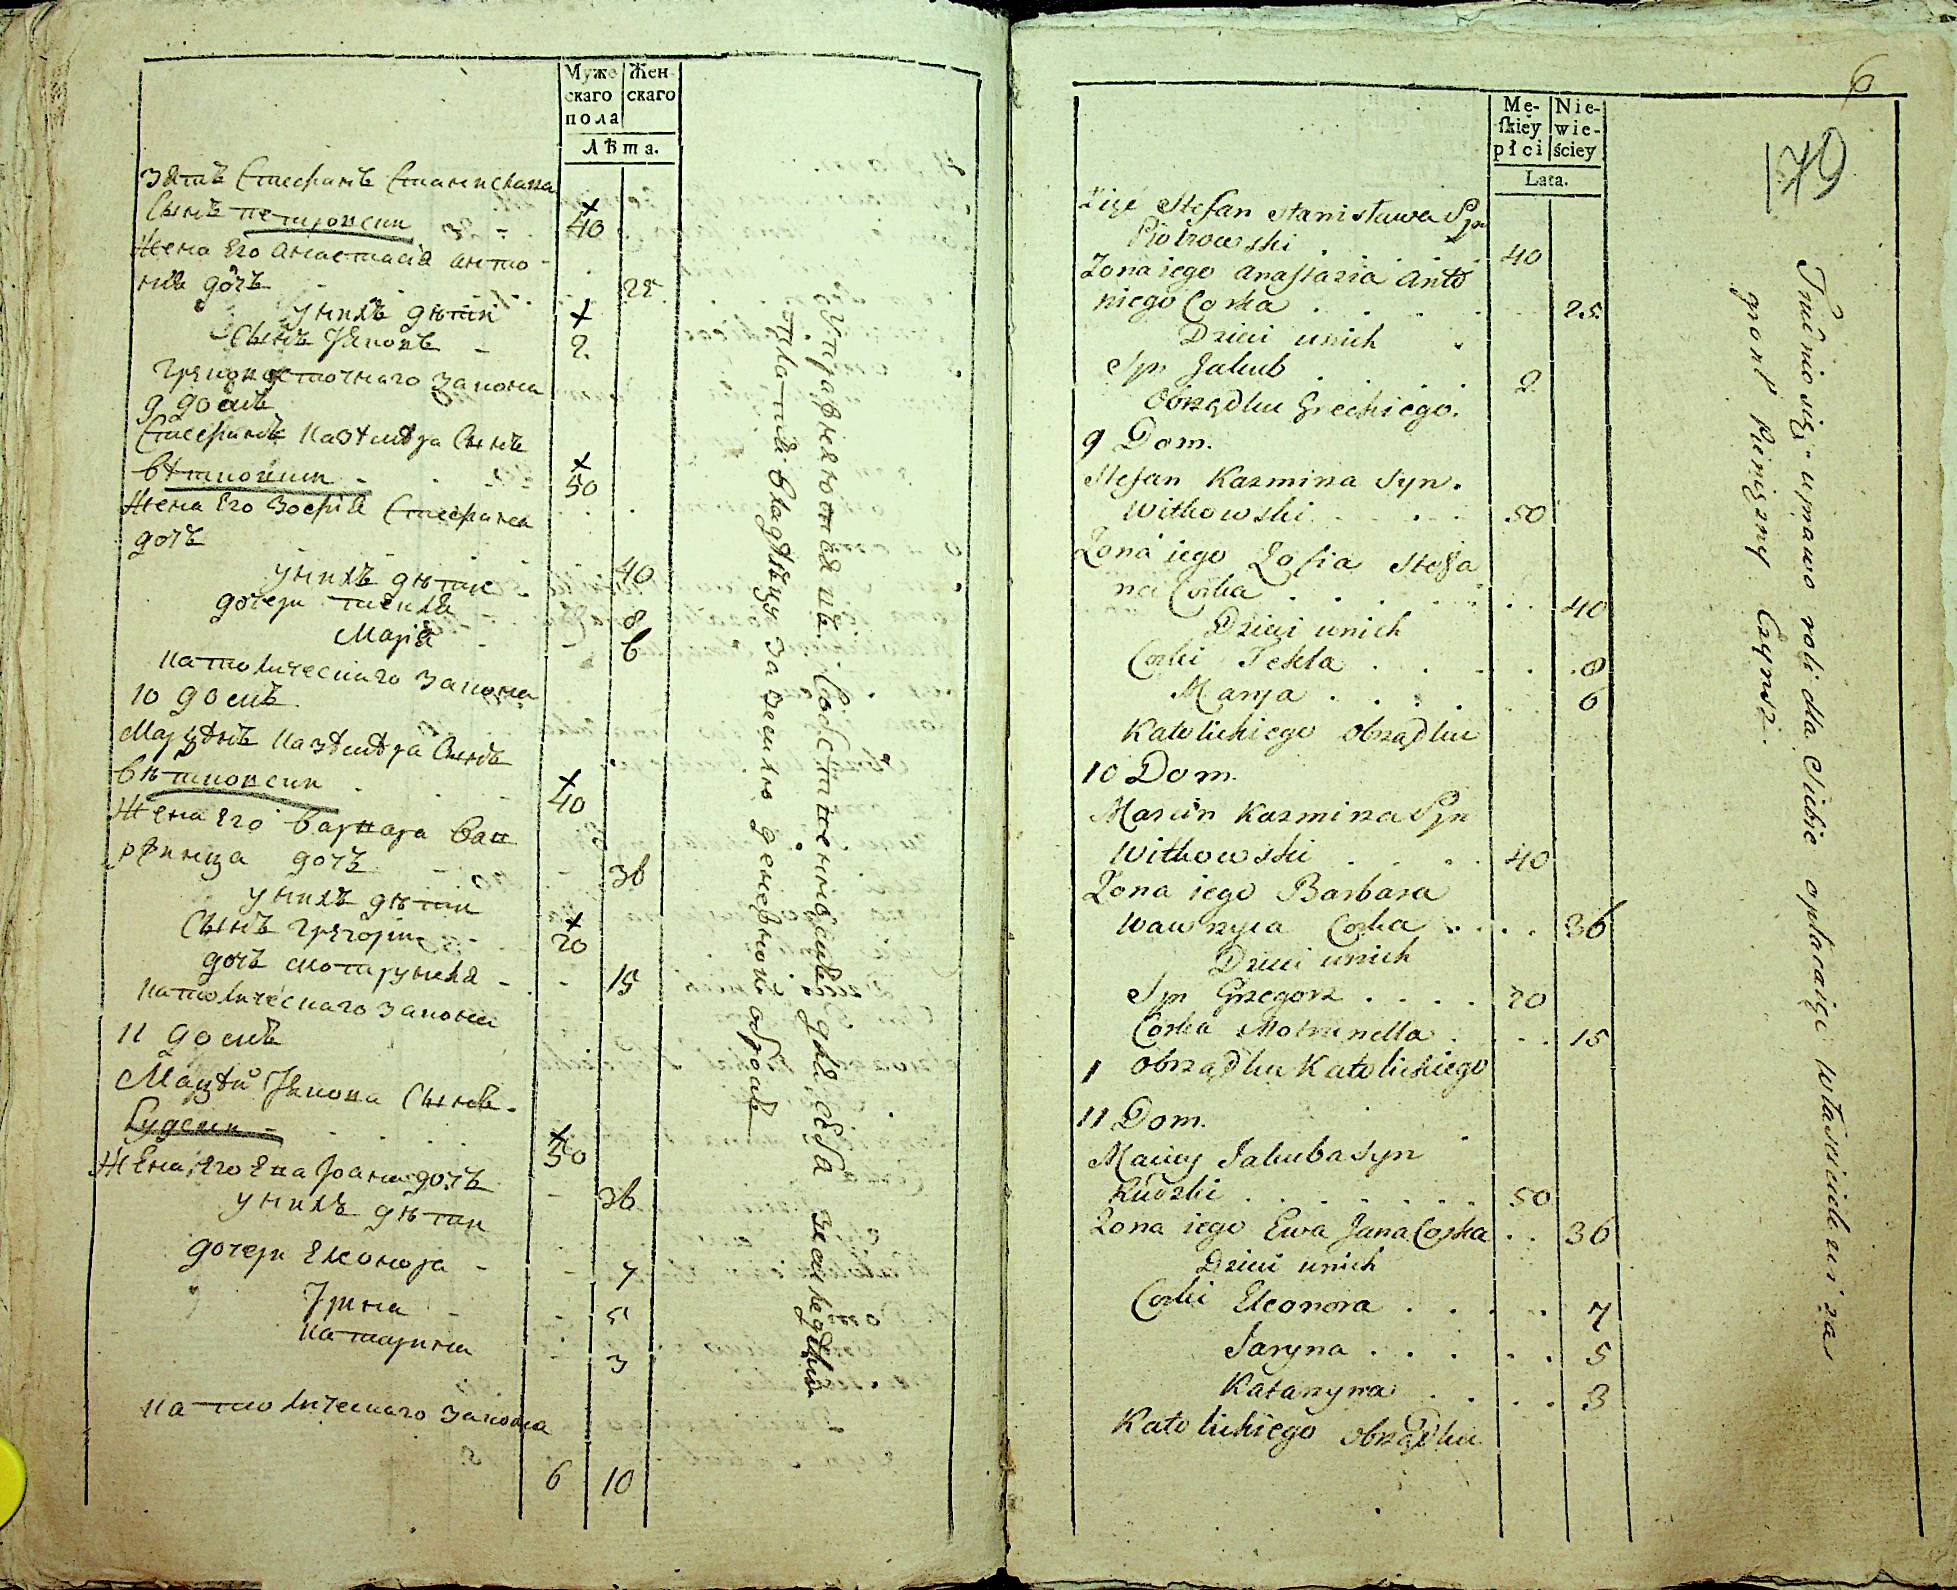 Муже Жен
скаго скаго
пола
Лѣта.
Зять Стефанъ Станислава
Сынъ Петровски 40
Жена Его Анастасія Анто
нія дочъ 25
у нихъ дѣти
Сынъ Яковъ 2.
9 домъ
Стефанъ Казѣмѣра Сынъ
Вѣтковски 50
Жена Его Зофія Стефана
дочъ 40
у нихъ дѣти
дочери Текля 8
Марія 6
Католическаго закона
10 домъ
Марцѣнъ Казѣмѣра Сынъ
Вѣтковски 40
Жена Его Варвара Вав
рѣнца дочъ 36
у нихъ дѣти
Сынъ Грегори 20
дочъ Мотрунеля 15
Католическаго закона
11 домъ
Мацѣй Якова Сынъ
Рудски 50
Жена Его Ева Іоана дочъ 36
у нихъ дѣти
дочери Елеонора 7
Ірина 5
Катарина 3
Католическаго закона
6 10
Упражняются въ Собственномъ для себя земледѣліи
платятъ владѣлцу за землю денежной оброкъ
6
Mę- Nie-
skiey wie-
płci ściey
Lata.
Zięc Stefan Stanisława Syn
Piotrowski 40
Zona iego Anastazia Anto
niego Corka 25
Dzieci unich
Syn Jakub 2
Obrządku Greckiego.
9 Dom.
Stefan Kazmirza Syn.
Witkowski 50
Zona iego Zofia Stefa
na Corka 40
Dzieci unich
Corki Tekla 8
Marya 6
Katolickiego obrządku
10 Dom.
Marcin Kazmirza Syn
Witkowski 40
Zona iego Barbara
Wawrzyca Corka 36
Dzieci unich
Syn Grzegorz 20
Corka Motrunella 15
obrządku Katolickiego
11 Dom.
Maciey Jakuba Syn
Rudzki 50
Zona iego Ewa Jana Corka 36
Dzieci unich
Corki Eleonora 7
Jaryna 5
Katarzyna 3
Katolickiego obrządku
Trudnio się uprawo roli dla Siebie opłacaiąc właścicielowi za
gront Pieniężny Czynsz.